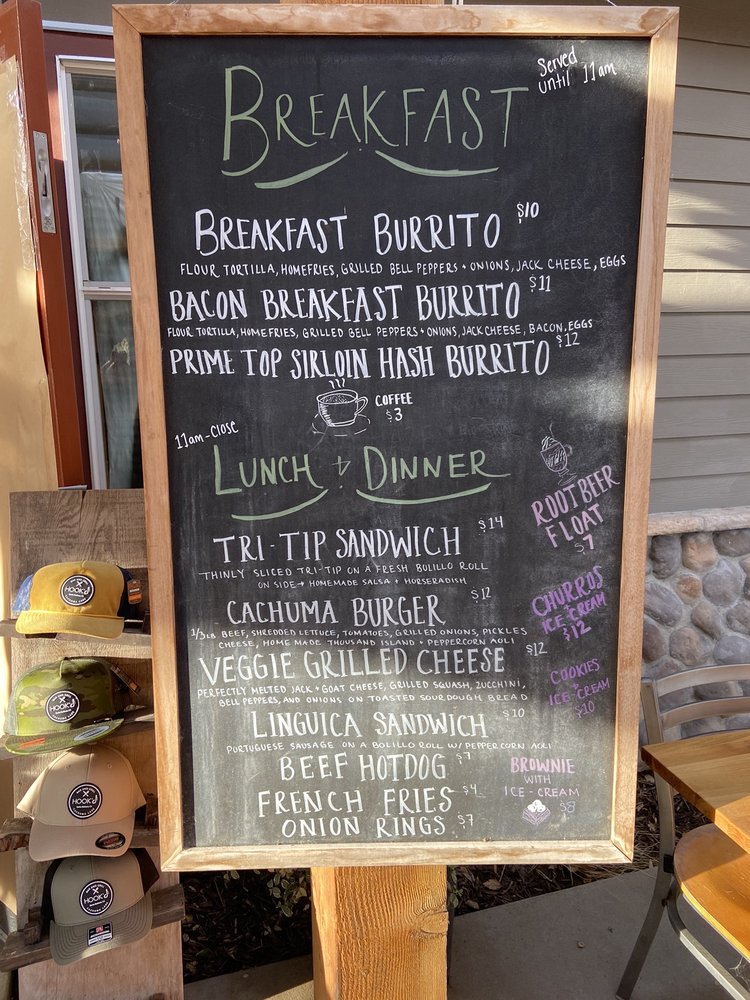 Served
until 11am
BREAKFAST
BREAKFAST BURRITO $10
FLOUR TORTILLA, HOMEFRIES, GRILLED BELL PEPPERS + ONIONS, JACK CHEESE, EGGS
BACON BREAKFAST BURRITO $11
FLOUR TORTILLA, HOMEFRIES, GRILLED BELL PEPPERS + ONIONS, JACK CHEESE, BACON, EGGS
PRIME TOP SIRLOIN HASH BURRITO $12
COFFEE
$3
11am-close
LUNCH + DINNER
TRI-TIP SANDWICH $14
THINLY SLICED TRI-TIP ON A FRESH BOLILLO ROLL
ON SIDE → HOMEMADE SALSA + HORSERADISH
CACHUMA BURGER $12
1/3 LB BEEF, SHREDDED LETTUCE, TOMATOES, GRILLED ONIONS, PICKLES
CHEESE, HOME MADE THOUSAND ISLAND + PEPPERCORN AOLI
VEGGIE GRILLED CHEESE $12
PERFECTLY MELTED JACK + GOAT CHEESE, GRILLED SQUASH, ZUCCHINI,
BELL PEPPERS, AND ONIONS ON TOASTED SOURDOUGH BREAD
LINGUICA SANDWICH $10
PORTUGUESE SAUSAGE ON A BOLILLO ROLL W/ PEPPERCORN AOLI
BEEF HOTDOG $7
FRENCH FRIES $4
ONION RINGS $7
ROOT BEER
FLOAT
$7
CHURROS
ICE CREAM
$12
COOKIES
ICE-CREAM
$10
BROWNIE
WITH
ICE-CREAM
$8
HOOK'D
HOOK'D
HOOK'D
HOOK'D